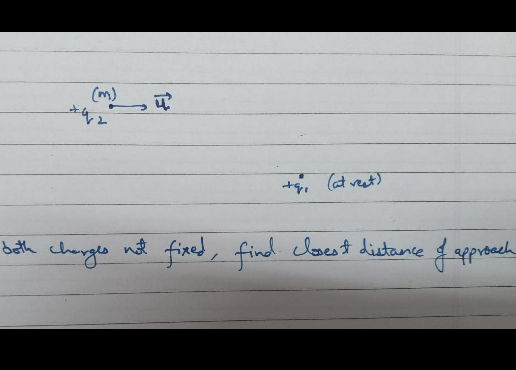 (m)
+q2 u
+q1 (at rest)
both charges not fixed, find closest distance of approach